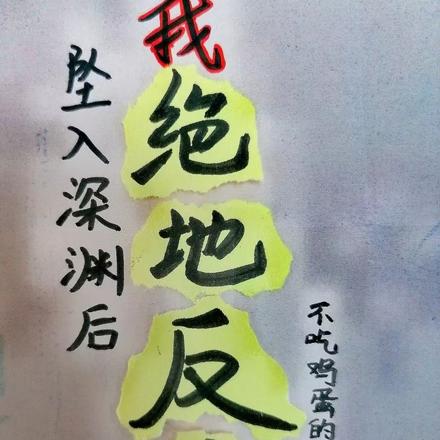 坠入深渊后
我绝地反
不吃鸡蛋的